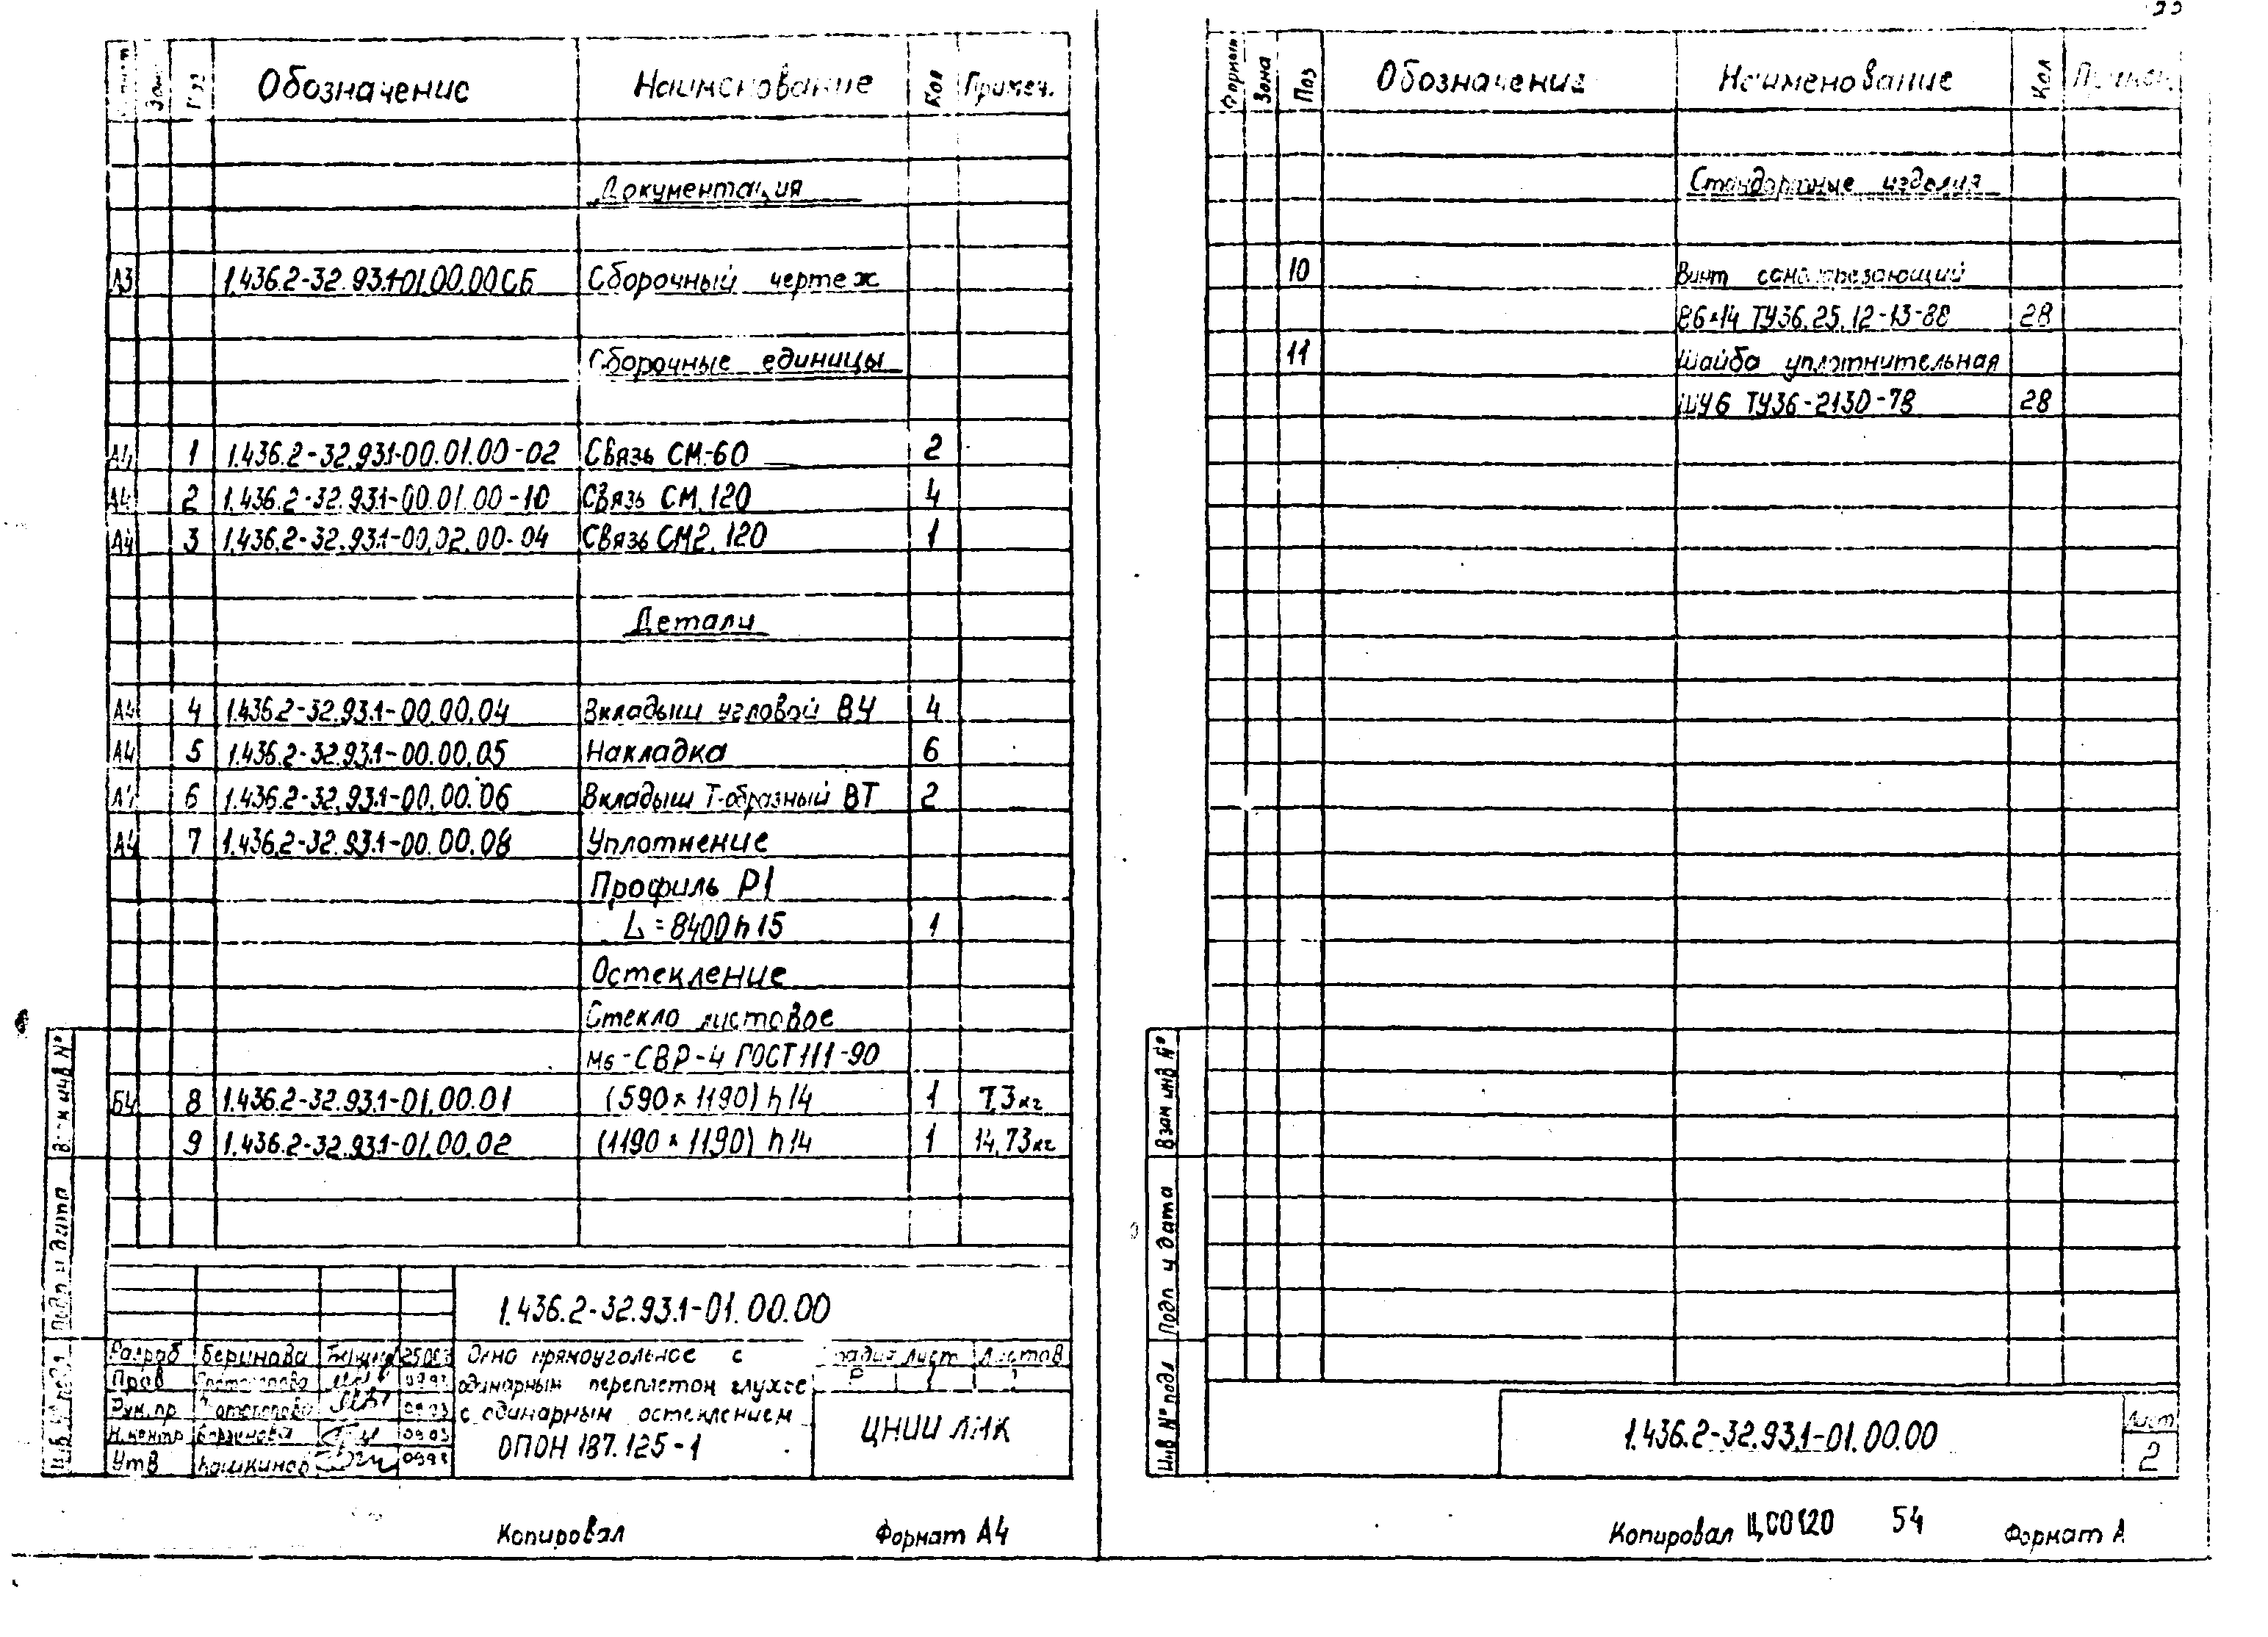 Поз Обозначение Наименование Кол Примеч.
Документация
А3 1.436.2-32.93.1-01.00.00СБ Сборочный чертеж
Сборочные единицы
А4 1 1.436.2-32.93.1-00.01.00-02 Связь СМ-60 2
А4 2 1.436.2-32.93.1-00.01.00-10 Связь СМ.120 4
А4 3 1.436.2-32.93.1-00.02.00-04 Связь СМ2.120 1
Детали
А4 4 1.436.2-32.93.1-00.00.04 Вкладыш угловой ВУ 4
А4 5 1.436.2-32.93.1-00.00.05 Накладка 6
А4 6 1.436.2-32.93.1-00.00.06 Вкладыш Т-образный ВТ 2
А4 7 1.436.2-32.93.1-00.00.08 Уплотнение
Профиль Р1
L=8400h15 1
Остекление
Стекло листовое
М6-СВР-4 ГОСТ 111-90
БЧ 8 1.436.2-32.93.1-01.00.01 (590×1190)h14 1 7,3кг
9 1.436.2-32.93.1-01.00.02 (1190×1190)h14 1 14,73кг
Взам инв №
Подп и дата
Инв № подл
1.436.2-32.93.1-01.00.00
Разраб Беринова
Пров 09.93
Рук.пр 09.93
Н.контр Беринова 09.93
Утв Кошкинов 09.93
Окно прямоугольное с
одинарным переплетом глухое
с одинарным остеклением
ОПОН 187.125-1
Стадия Лист Листов
Р 1
ЦНИИ ЛМК
Копировал Формат А4
Формат Зона Поз Обозначение Наименование Кол Примеч.
Стандартные изделия
10 Винт самонарезающий
В6×14 ТУ36.25.12-13-88 28
11 Шайба уплотнительная
ШУ6 ТУ36-2130-78 28
Взам инв №
Подп и дата
Инв № подл
1.436.2-32.93.1-01.00.00
Лист
2
Копировал ЦС0120 54 Формат А